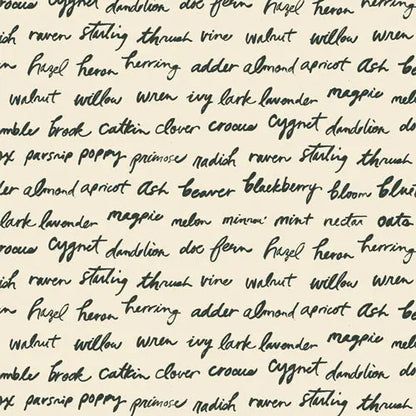 crocus Cygnet dandelion doe fern hazel heron herring
ish raven starling thrush vine walnut willow wren
n hazel heron herring adder almond apricot Ash be
walnut willow wren ivy lark lavender magpie melo
mble brook catkin clover crocus Cygnet dandelion do
ox parsnip poppy primrose radish raven starling thrush
der almond apricot Ash beaver blackberry bloom blue
lark lavender magpie melon minnow mint nectar oats
rocus Cygnet dandelion doe fern hazel heron herring
ish raven starling thrush vine walnut willow wren
n hazel heron herring adder almond apricot Ash be
walnut willow wren ivy lark lavender magpie melo
mble brook catkin clover crocus Cygnet dandelion do
ox parsnip poppy primrose radish raven starling thrush